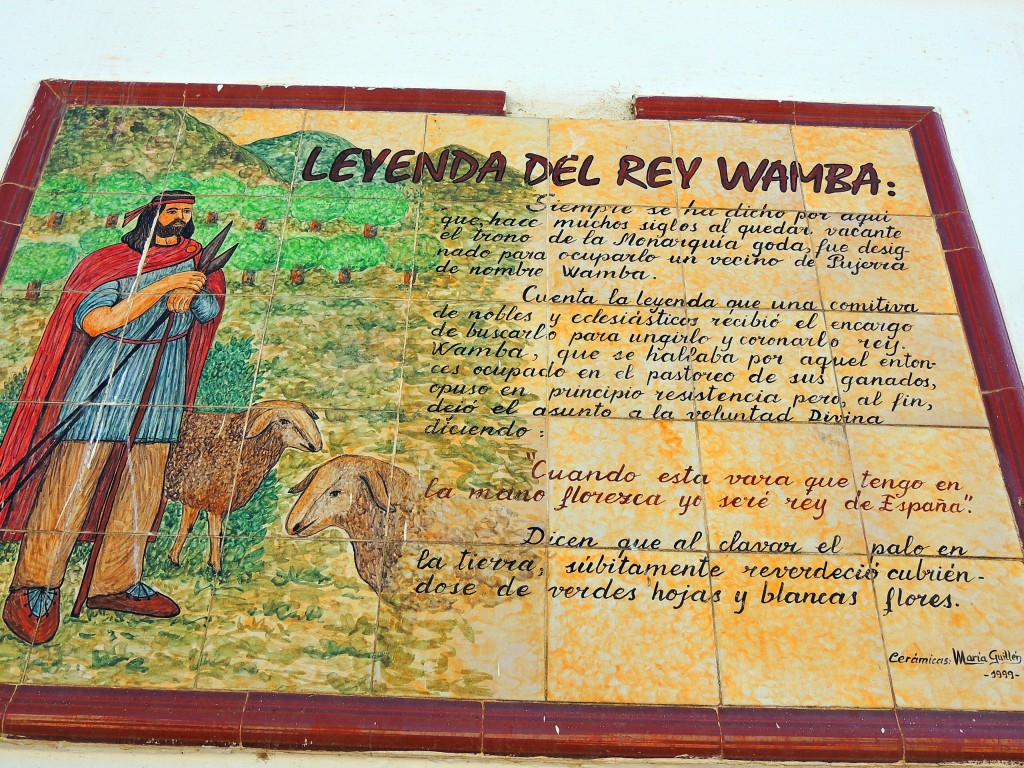 LEYENDA DEL REY WAMBA:
Siempre se ha dicho por aquí
que, hace muchos siglos al quedar vacante
el trono de la Monarquía goda, fue desig-
nado para ocuparlo un vecino de Pujerra
de nombre Wamba.
Cuenta la leyenda que una comitiva
de nobles y eclesiásticos recibió el encargo
de buscarlo para ungirlo y coronarlo rey.
Wamba, que se hallaba por aquel enton-
ces ocupado en el pastoreo de sus ganados,
opuso en principio resistencia pero, al fin,
dejó el asunto a la voluntad Divina
diciendo:
"Cuando esta vara que tengo en
la mano florezca yo seré rey de España".
Dicen que al clavar el palo en
la tierra, súbitamente reverdeció cubrién-
dose de verdes hojas y blancas flores.
Cerámicas: María Guillén
-1999-